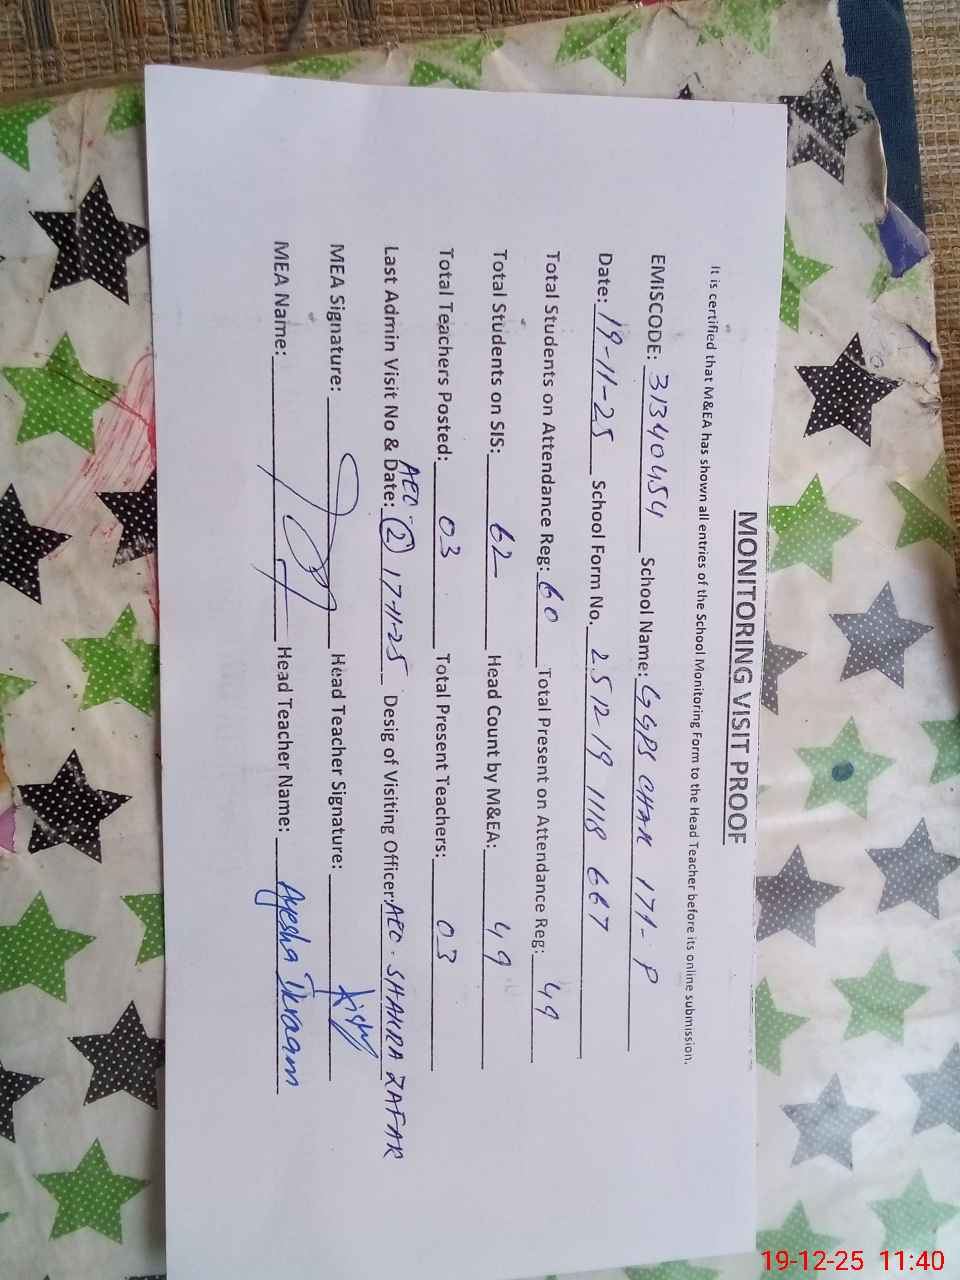 MONITORING VISIT PROOF
It is certified that M&EA has shown all entries of the School Monitoring Form to the Head Teacher before its online submission.
EMISCODE: 31340454 School Name: GGPS CHAK 171-P
Date: 19-11-25 School Form No. 2512191118667
Total Students on Attendance Reg: 60 Total Present on Attendance Reg: 49
Total Students on SIS: 62 Head Count by M&EA: 49
Total Teachers Posted: 03 Total Present Teachers: 03
Last Admin Visit No & Date: AEO (2) 17-11-25 Desig of Visiting Officer: AEO. SHAHRA ZAFAR
MEA Signature: Head Teacher Signature:
MEA Name: Head Teacher Name: Ayesha Ikraam
19-12-25 11:40